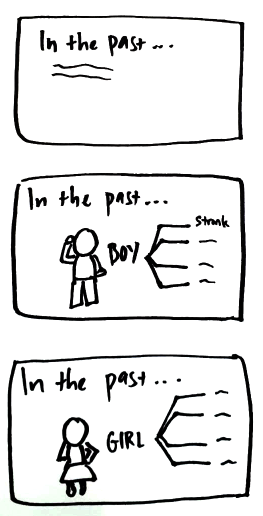 In the past...
In the past...
Stronk
BOY
In the past...
GIRL